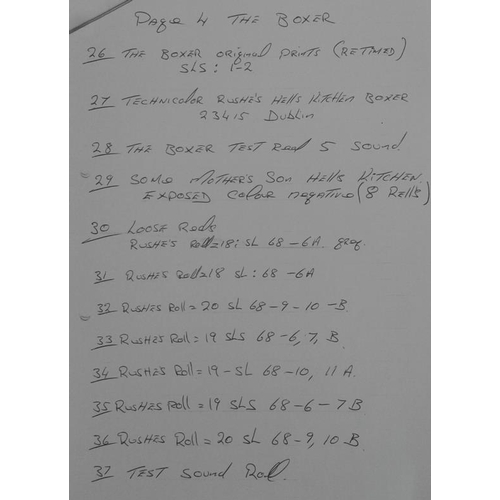 Page 4 THE BOXER
26 THE BOXER original prints (RETIMED)
SLS: 1-2
27 TECHNICOLOR RUSHE'S HELLS KITCHEN BOXER
23415 Dublin
28 THE BOXER TEST Reel 5 Sound
29 SOME MOTHER'S SON HELLS KITCHEN
EXPOSED COLOUR negative (8 RELLS)
30 LOOSE Reels
RUSHE'S Roll=18: SL 68-6A
31 RUSHES Roll=18 SL: 68-6A
32 RUSHES Roll = 20 SL 68-9-10-B
33 RUSHES Roll = 19 SLS 68-6, 7, B
34 RUSHES Roll = 19-SL 68-10, 11 A.
35 RUSHES Roll = 19 SLS 68-6-7B
36 RUSHES Roll = 20 SL 68-9, 10-B.
37 TEST Sound Roll.